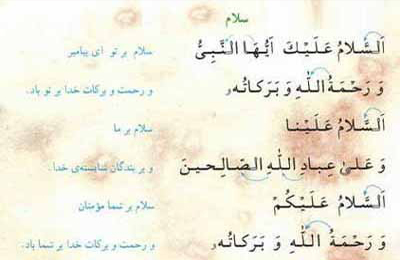 سلام
اَلسَّلامُ عَلَيْكَ اَيُّهَا النَّبِيُّ سلام بر تو ای پیامبر
وَ رَحْمَةُ اللّٰهِ وَ بَرَكاتُهُ و رحمت و برکات خدا بر تو باد.
اَلسَّلامُ عَلَيْنا سلام بر ما
وَ عَلىٰ عِبادِ اللّٰهِ الصّالِحينَ و بر بندگان شایسته‌ی خدا.
اَلسَّلامُ عَلَيْكُمْ سلام بر شما مؤمنان
وَ رَحْمَةُ اللّٰهِ وَ بَرَكاتُهُ و رحمت و برکات خدا بر شما باد.